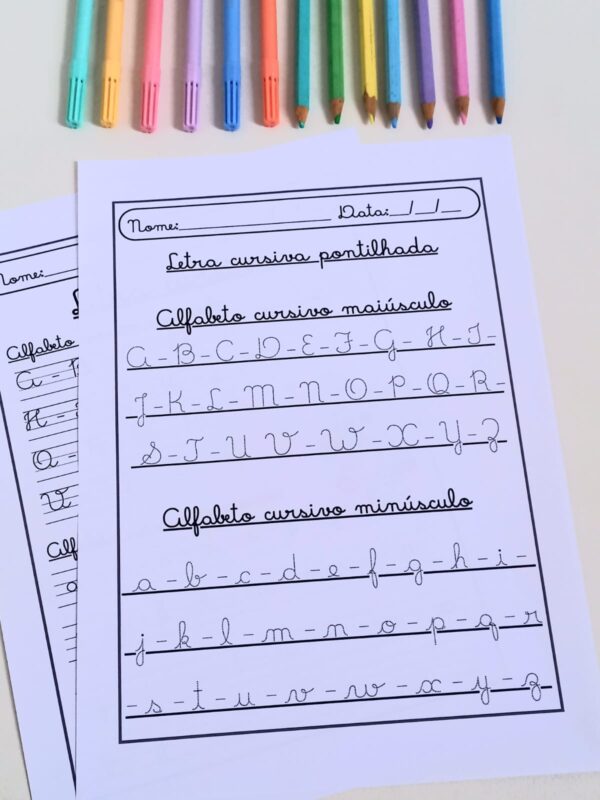 Nome:____________________ Data:__/__/__
Letra cursiva pontilhada
Alfabeto cursivo maiúsculo
A - B - C - D - E - F - G - H - I -
- J - K - L - M - N - O - P - Q - R -
S - T - U V - W - X - Y - Z
Alfabeto cursivo minúsculo
a - b - c - d - e - f - g - h - i -
- j - k - l - m - n - o - p - q - r
- s - t - u - v - w - x - y - z
Nome:___
Alfabeto
A -
H -
O -
V